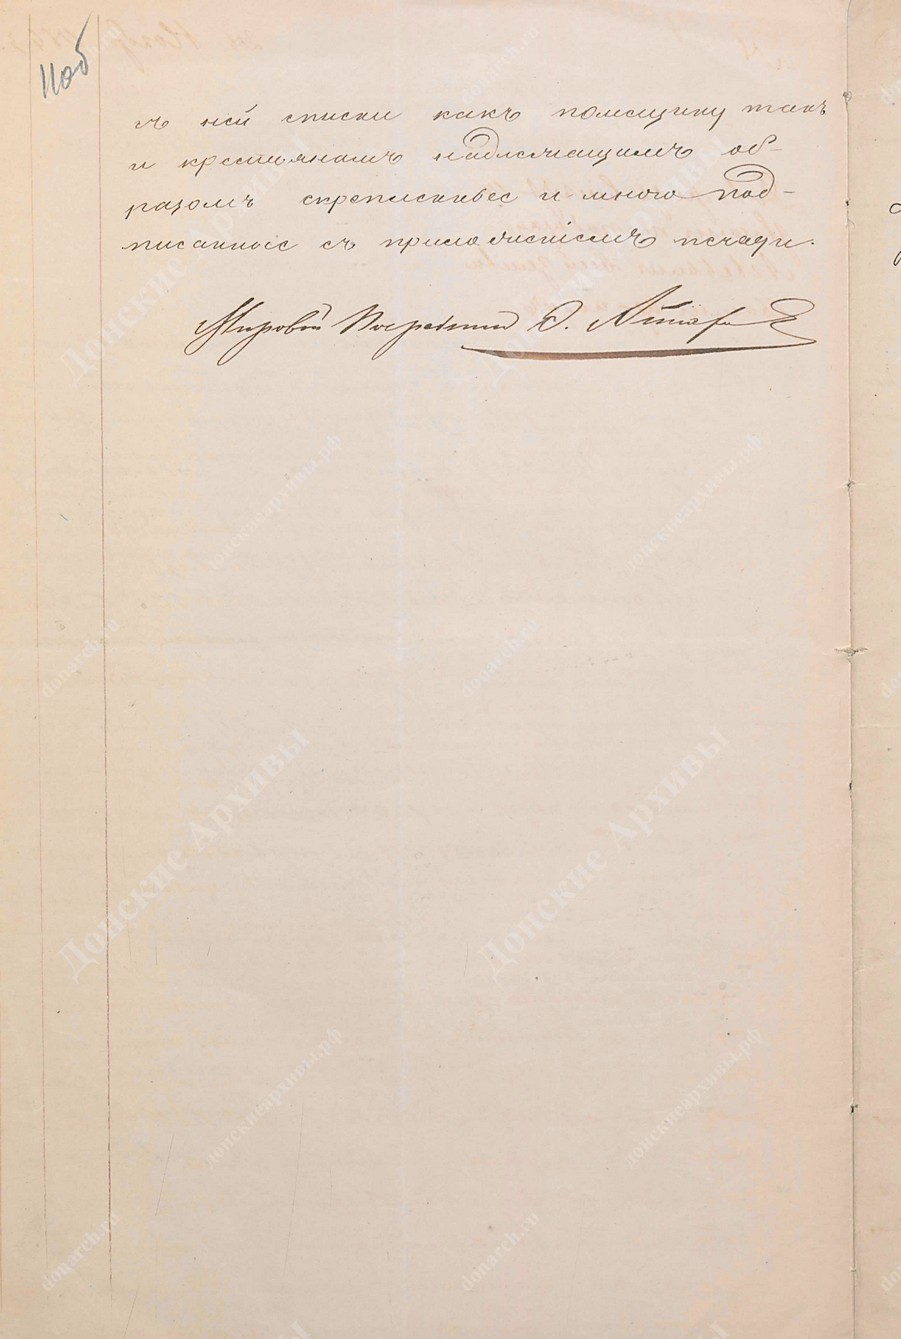 11об
съ ней списки какъ помещику такъ
и крестьянамъ надлежащимъ об-
разомъ скрепленные и мною под-
писанные съ приложениемъ печати.
Мировой Посредникъ
Донские Архивы
донскиеархивы.рф
donarch.ru